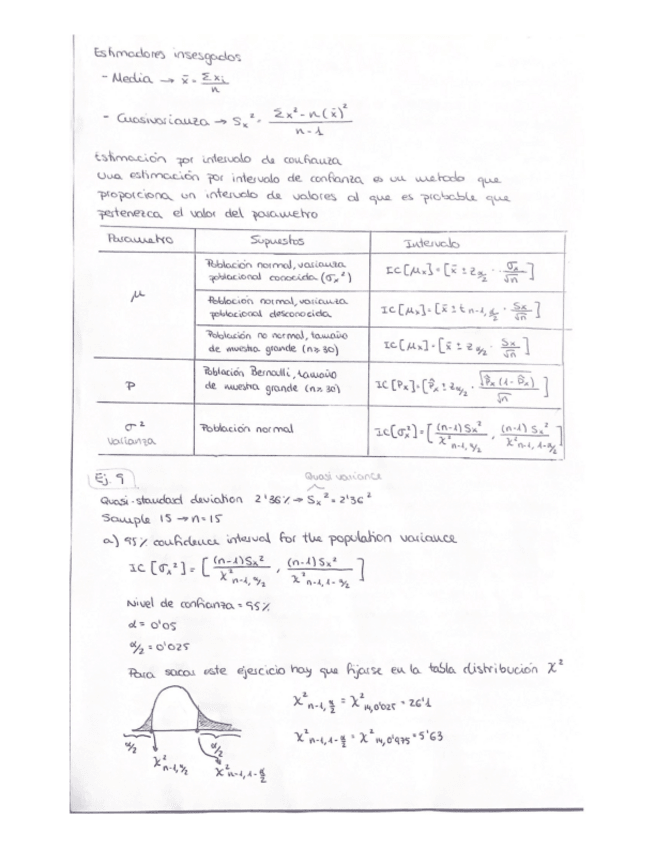 Estimadores insesgados
- Media → x̄ = Σxᵢ / n
- Cuasivarianza → Sₓ² = Σx² - n(x̄)² / n-1
Estimación por intervalo de confianza
Una estimación por intervalo de confianza es un metodo que
proporciona un intervalo de valores al que es probable que
pertenezca el valor del parametro
Parametro Supuestos Intervalo
μ
Población normal, varianza
poblacional conocida (σₓ²)
IC[μₓ]=[x̄ ± z α/2 · σₓ/√n]
Población normal, varianza
poblacional desconocida
IC[μₓ]=[x̄ ± t n-1, α/2 · Sx/√n]
Población no normal, tamaño
de muestra grande (n≥30)
IC[μₓ]=[x̄ ± z α/2 · Sx/√n]
P
Población Bernulli, tamaño
de muestra grande (n≥30)
IC[Pₓ]=[p̂ₓ ± z α/2 · √p̂ₓ(1-p̂ₓ) / √n]
σ²
varianza
Población normal
IC[σₓ²]=[(n-1)Sₓ² / χ² n-1, α/2 , (n-1)Sₓ² / χ² n-1, 1-α/2]
Ej. 9
Quasi variance
Quasi-standard deviation 2'36% → Sₓ² = 2'36²
Sample 15 → n=15
a) 95% confidence interval for the population variance
IC[σₓ²]=[(n-1)Sₓ² / χ² n-1, α/2 , (n-1)Sₓ² / χ² n-1, 1-α/2]
Nivel de confianza = 95%
α = 0'05
α/2 = 0'025
Para sacar este ejercicio hay que fijarse en la tabla distribución χ²
χ² n-1, α/2 = χ² 14, 0'025 = 26'1
χ² n-1, 1-α/2 = χ² 14, 0'975 = 5'63
α/2 α/2
χ² n-1, α/2 χ² n-1, 1-α/2